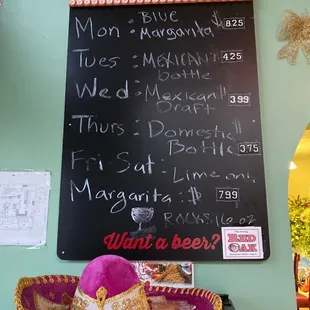 BLUE
Mon: Margarita $ 8.25
Tues: MEXICAN $ 4.25
bottle
Wed: Mexican $
Draft 3.99
Thurs: Domestic $
Bottle 3.75
Fri Sat: Lime only
Margarita: $ 7.99
ROCKS 16 oz
Want a beer?
RED OAK